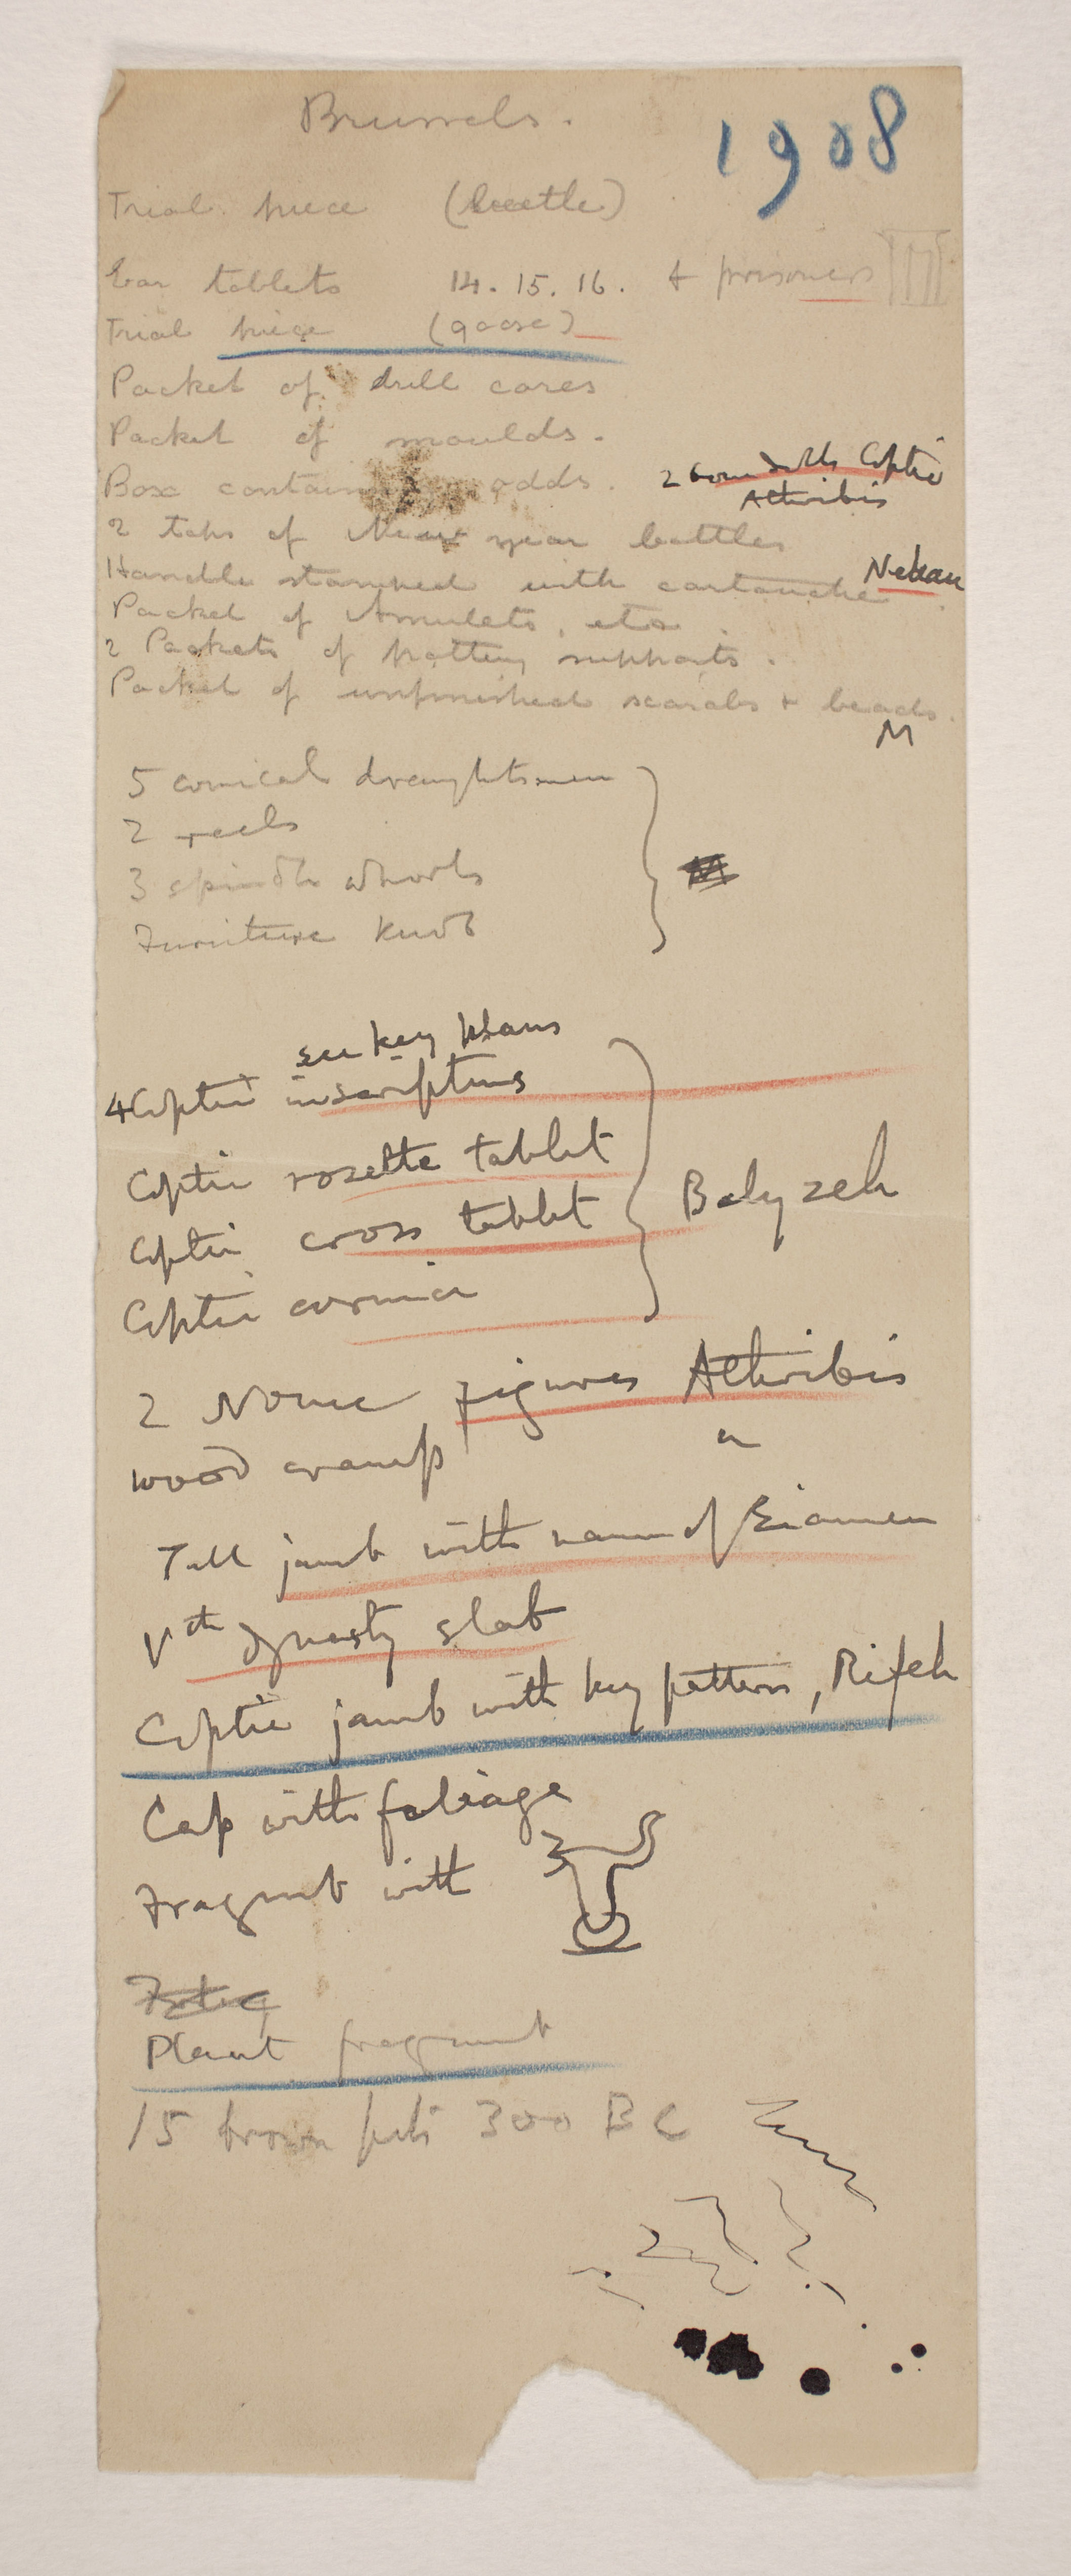 Brussels.
1908
Trial piece (beetle)
Ear tablets 14. 15. 16. + prisoners
Trial piece (goose)
Packet of drill cores
Packet of moulds.
Box containing odds.
2 Coptic
Athribis
2 tops of New year bottles
Handle stamped with cartouche
Packet of Amulets, etc.
2 Packets of pottery supports.
Packet of unfinished scarabs + beads.
M
5 conical draughtsmen
2 reels
3 spindle whorls
Furniture knob
M
see key plans
4 Coptic inscriptions
Coptic rosette tablet
Coptic cross tablet
Coptic cornice
Balyzeh
2 Nome figures Athribis
wood cramp "
Tall jamb with name of Siamen
Vth dynasty slab
Coptic jamb with key pattern, Rifeh
Cap with foliage
Fragmt with
Plant fragmt
15 brown pots 300 BC